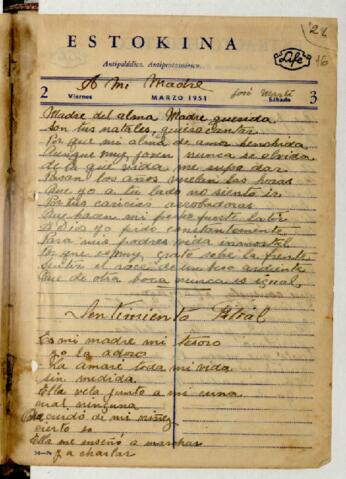 ESTOKINA
Antipalúdico. Antiprotozoárico.
Life
16
A Mi Madre
2
Viernes
MARZO 1951
José Martí
Sábado
3
Madre del alma Madre querida
son tus natales, quiero cantar
Por que mi alma de amor henchida
Aunque muy joven nunca se olvida
De la que vida me supo dar
Pasan los años vuelan las horas
Que yo a tu lado no siento ir
Por tus caricias arrobadoras
Que hacen mi pecho fuerte latir
A Dios yo pido constantemente
Para mis padres vida inmortal
Por que es muy grato sobre la frente
Sentir el roce de un beso ardiente
Que de otra boca nunca es igual
Sentimiento Filial
Es mi madre mi tesoro
yo la adoro
la amaré toda mi vida
sin medida
Ella vela junto a mi cuna
cual ninguna
de mi niñez
cierto es
Ella me enseñó a marchar
y a charlar